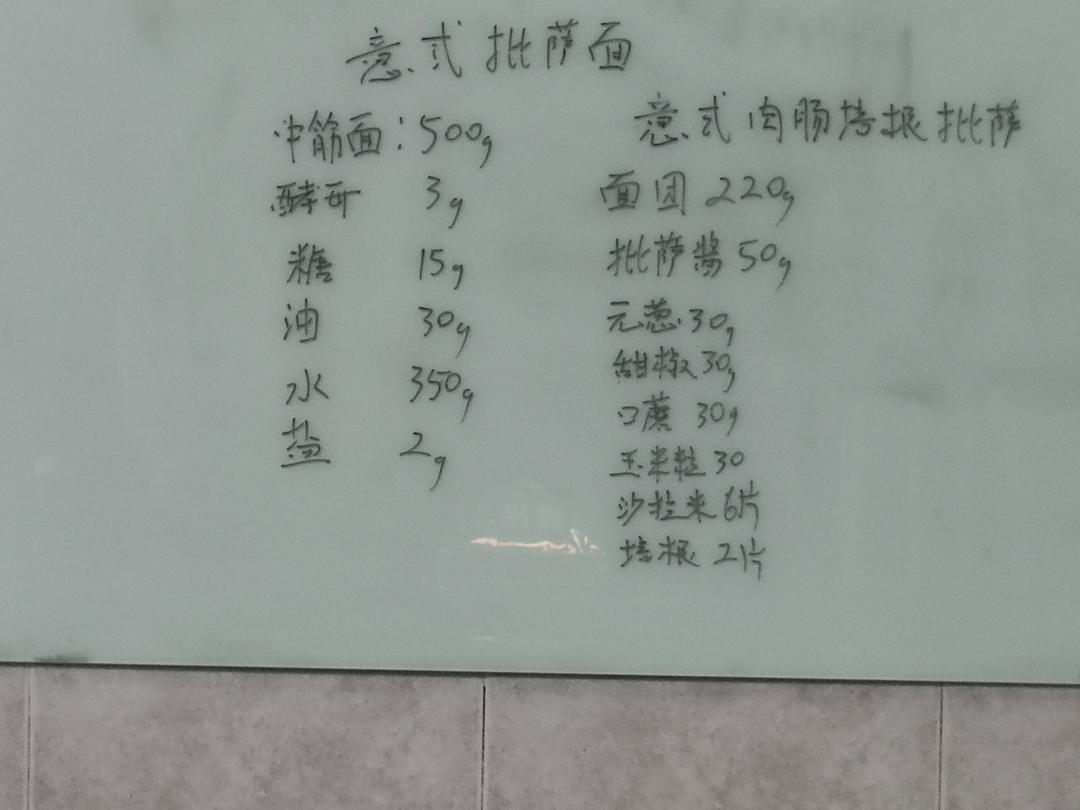 意式批萨面
中筋面：500g
酵母 3g
糖 15g
油 30g
水 350g
盐 2g
意式肉肠培根批萨
面团 220g
批萨酱 50g
元葱 30g
甜椒 30g
口蘑 30g
玉米粒 30
沙拉米 6片
培根 2片